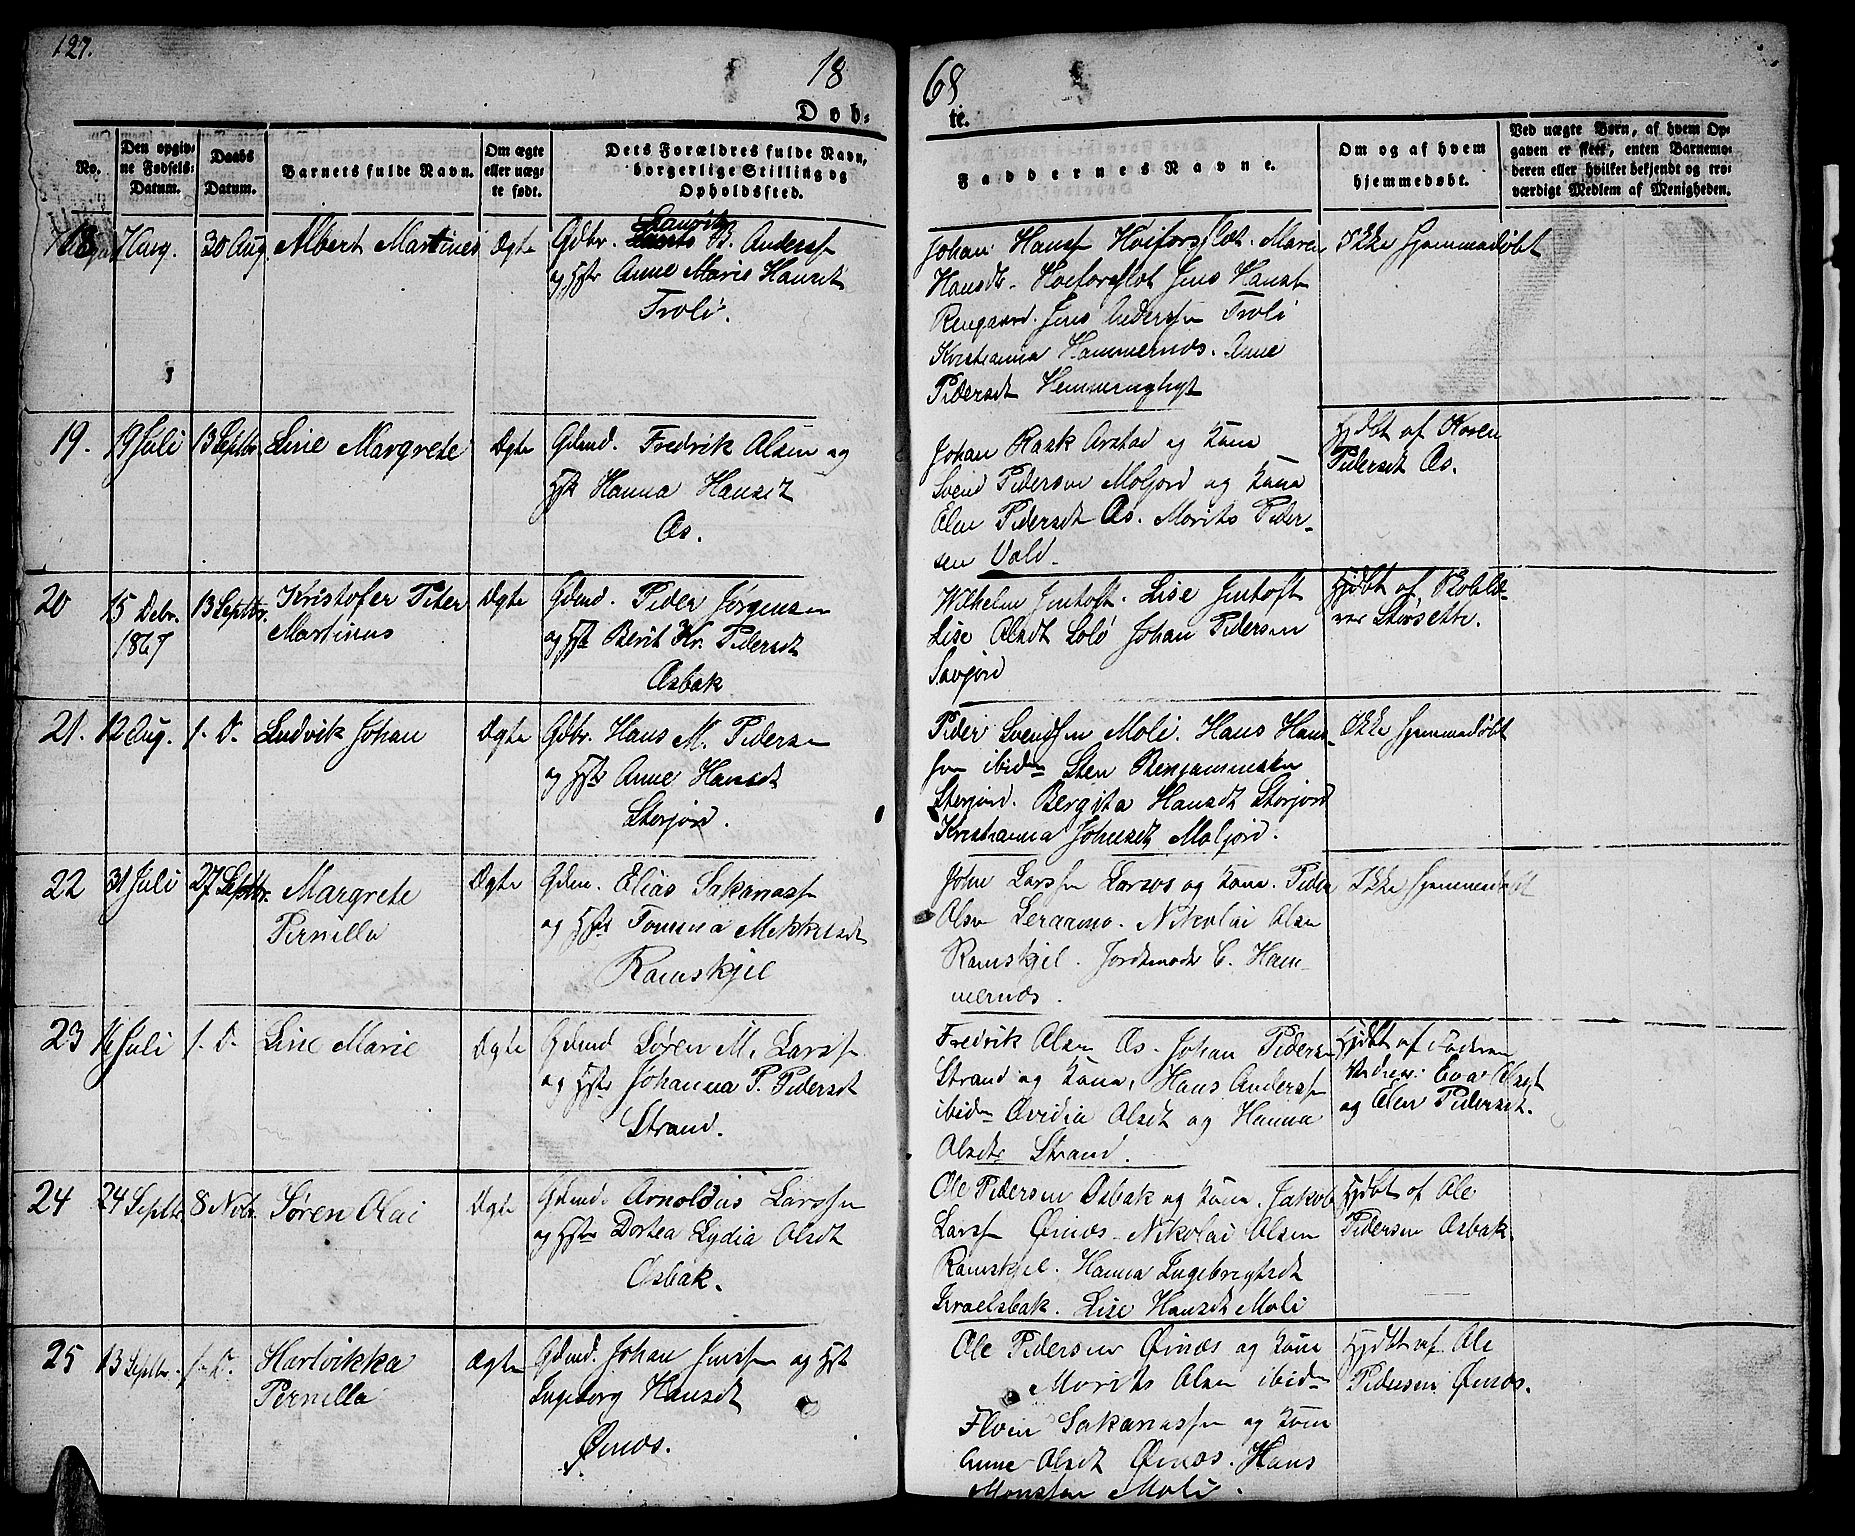 127.
18 68
Dob-
te.
No.
Den opgiv-
ne Fødsels-
Datum.
Daabs
Datum.
Barnets fulde Navn.
Om ægte
eller uæg-
te født.
Dets Forældres fulde Navn,
borgerlige Stilling og
Opholdssted.
Faddernes Navne.
Om og af hvem
hjemmedøbt.
Ved uægte Børn, af hvem Op-
gaven er skeet, enten Barnemo-
deren eller hvilket bekjendt og tro-
værdigt Medlem af Menigheden.
18
7 Aug.
30 Aug.
Albert Martines
Ægte
Gdbr. B. Anderss
og Hstr Anne Marie Hansdt
Troli.
Johan Hanss Høiforsslet. Maren
Hansdtr. Høiforsslet Jens Hanss
Rengaard. Jens Anderssen Troli
Kristianna Hammernæs. Anne
Pedersdt Hemminghyt
Ikke Hjemmedøbt
19.
19 Juli
13 Septbr.
Line Margrete
Ægte
Gdmd. Fredrik Olsen og
Hst Hanna Hansdt
Aas.
Johan Rask Arstad og Kone
Svend Pedersen Moljord og Kone
Elen Pedersdt Aas. Morits Peder-
sen Vald.
Hjdbt af Karen
Pedersdt Aas.
20
15 Debr.
1867
13 Septbr.
Kristofer Peter
Martinus
Ægte
Gdmd. Peder Jørgensen
og Hst Berit Kr. Pedersdt
Osbak
Wilhelm Jentoft. Lise Jentoft
Lise Olsdt Solø Johan Pedersen
Savjord
Hjdbt af
Storsette.
21.
12 Aug.
s. D.
Ludvik Johan
Ægte
Gdbr. Hans M. Pedersen
og Hstr Anne Hansdt
Storjord.
Peder Svendsen Moli. Hans Han-
sen ibiden Sten Benjaminsen
Storjord. Bergita Hansdt Storjord
Kristianna Johnsdt Moljord.
Ikke Hjemmedøbt
22
31 Juli
27 Septbr.
Margrete
Pernilla
Ægte
Gdm. Elias Sakariass
og Hstr Tomina Mikkelsdt
Ramskjel
John Larssen Larsos og Kone. Peder
Olsen Leraamo. Nikolai Olsen
Ramskjel. Jordemoder C. Ham-
mernæs.
Ikke Hjemmedøbt
23
16 Juli
s. D.
Line Marie
Ægte
Gdmd Søren M. Larssen
og Hstr Johanna P. Pedersdt
Strand.
Fredrik Olsen Aas. Johan Pedersen
Strand og Kone, Hans Anderssen
ibiden Ovidia Olsdt og Hanna
Olsdtr Strand.
Hjdbt af Faderen
Eva Olsdt
og Elen Pedersdt.
24
24 Septbr.
8 Novbr
Søren Olai
Ægte
Gdmd. Arnoldus Larssen
og Hstr Dortea Lydia Olsdt
Osbak.
Ole Pedersen Osbak og Kone. Jakob
Larssen Øinæs. Nikolai Olsen
Ramskjel. Hanna Ingebrigtsdt
Israelsbak. Lise Hansdt Moli
Hjdbt af Ole
Pedersen Osbak.
25
13 Septbr.
s. D.
Hartvikka
Pernilla
Ægte
Gdmd. Johan Jenssen og Hst
Ingeborg Hansdt
Øinæs.
Ole Pedersen Øinæs og Kone
Morits Olsen ibiden
Sakariassen og Kone
Anne Olsdt Øinæs. Hans
Monssen Moli.
Hjdbt af Ole
Pedersen Øinæs.